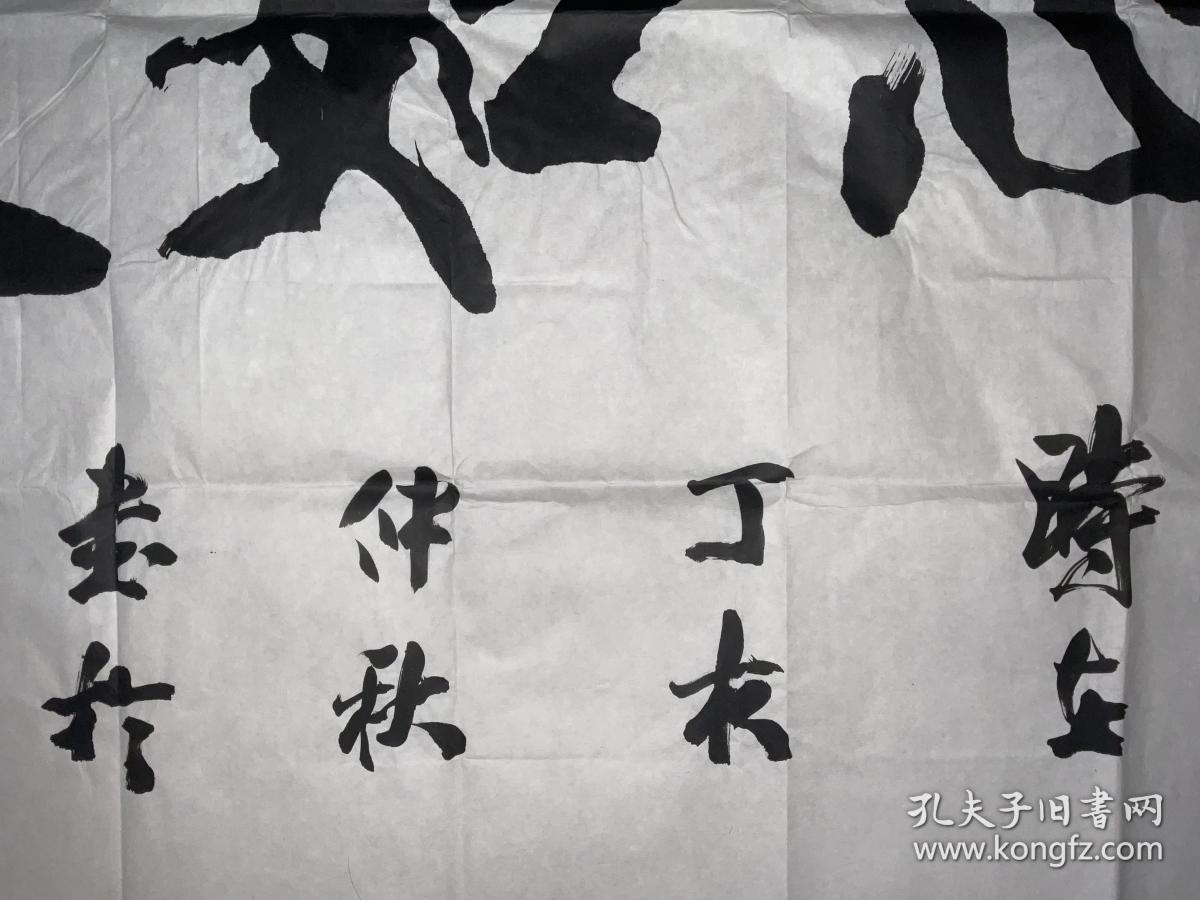 時在
丁
仲秋
書於
孔夫子旧書网
www.kongfz.com